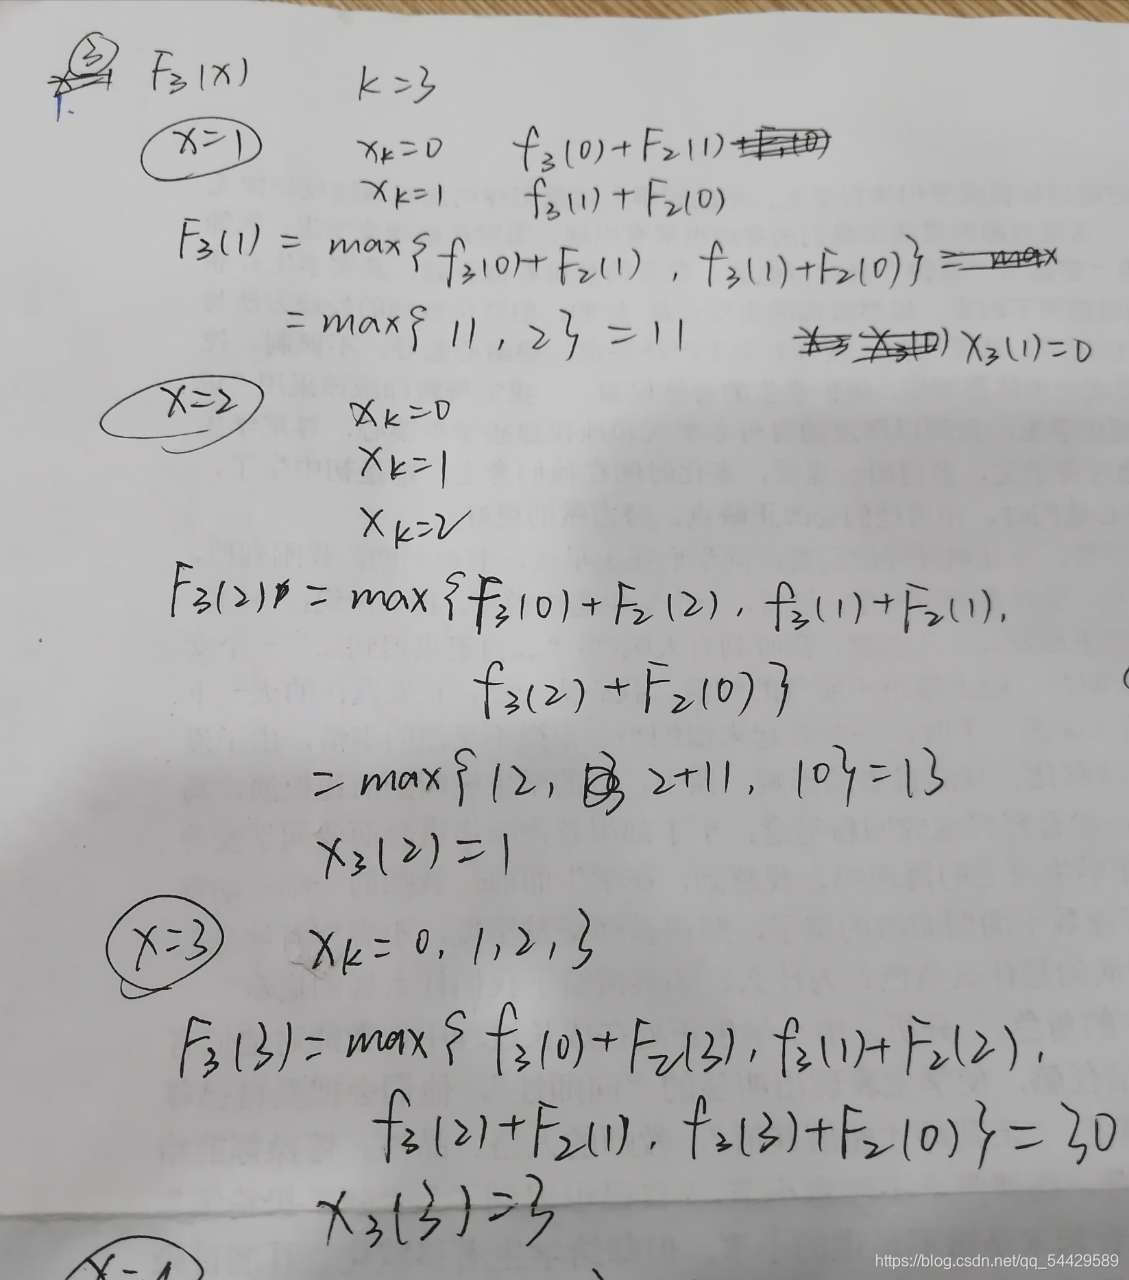 ③ F₃(x) k=3
1.
x=1 xₖ=0 f₃(0)+F₂(1)
xₖ=1 f₃(1)+F₂(0)
F₃(1) = max{f₃(0)+F₂(1), f₃(1)+F₂(0)} = max
= max{11, 2} = 11 x₃(1)=0
x=2 xₖ=0
xₖ=1
xₖ=2
F₃(2) = max{F₃(0)+F₂(2), f₃(1)+F₂(1),
f₃(2)+F₂(0)}
= max{12, 2+11, 10} = 13
x₃(2)=1
x=3 xₖ=0,1,2,3
F₃(3)=max{f₃(0)+F₂(3), f₃(1)+F₂(2),
f₃(2)+F₂(1), f₃(3)+F₂(0)}=30
x₃(3)=3
x=4
https://blog.csdn.net/qq_54429589